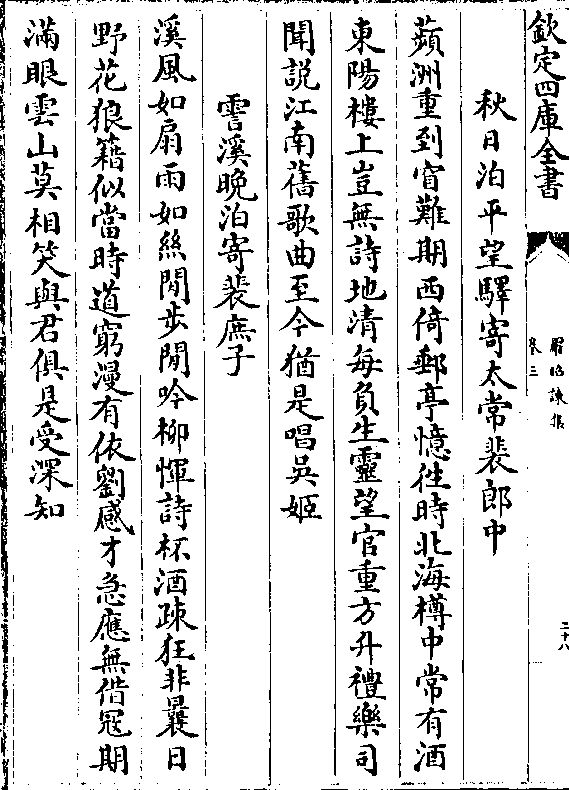 欽定四庫全書
羅昭諫集
卷三
二十八
秋日泊平望驛寄太常裴郎中
蘋洲重到窅難期西倚郵亭憶徃時北海樽中常有酒
東陽樓上豈無詩地清每負生靈望官重方升禮樂司
聞說江南舊歌曲至今猶是唱吳姬
霅溪晚泊寄裴庶子
溪風如扇雨如絲閒步閒吟柳惲詩杯酒疎狂非曩日
野花狼籍似當時道窮漫有依劉感才急應無借冦期
滿眼雲山莫相笑與君俱是受深知